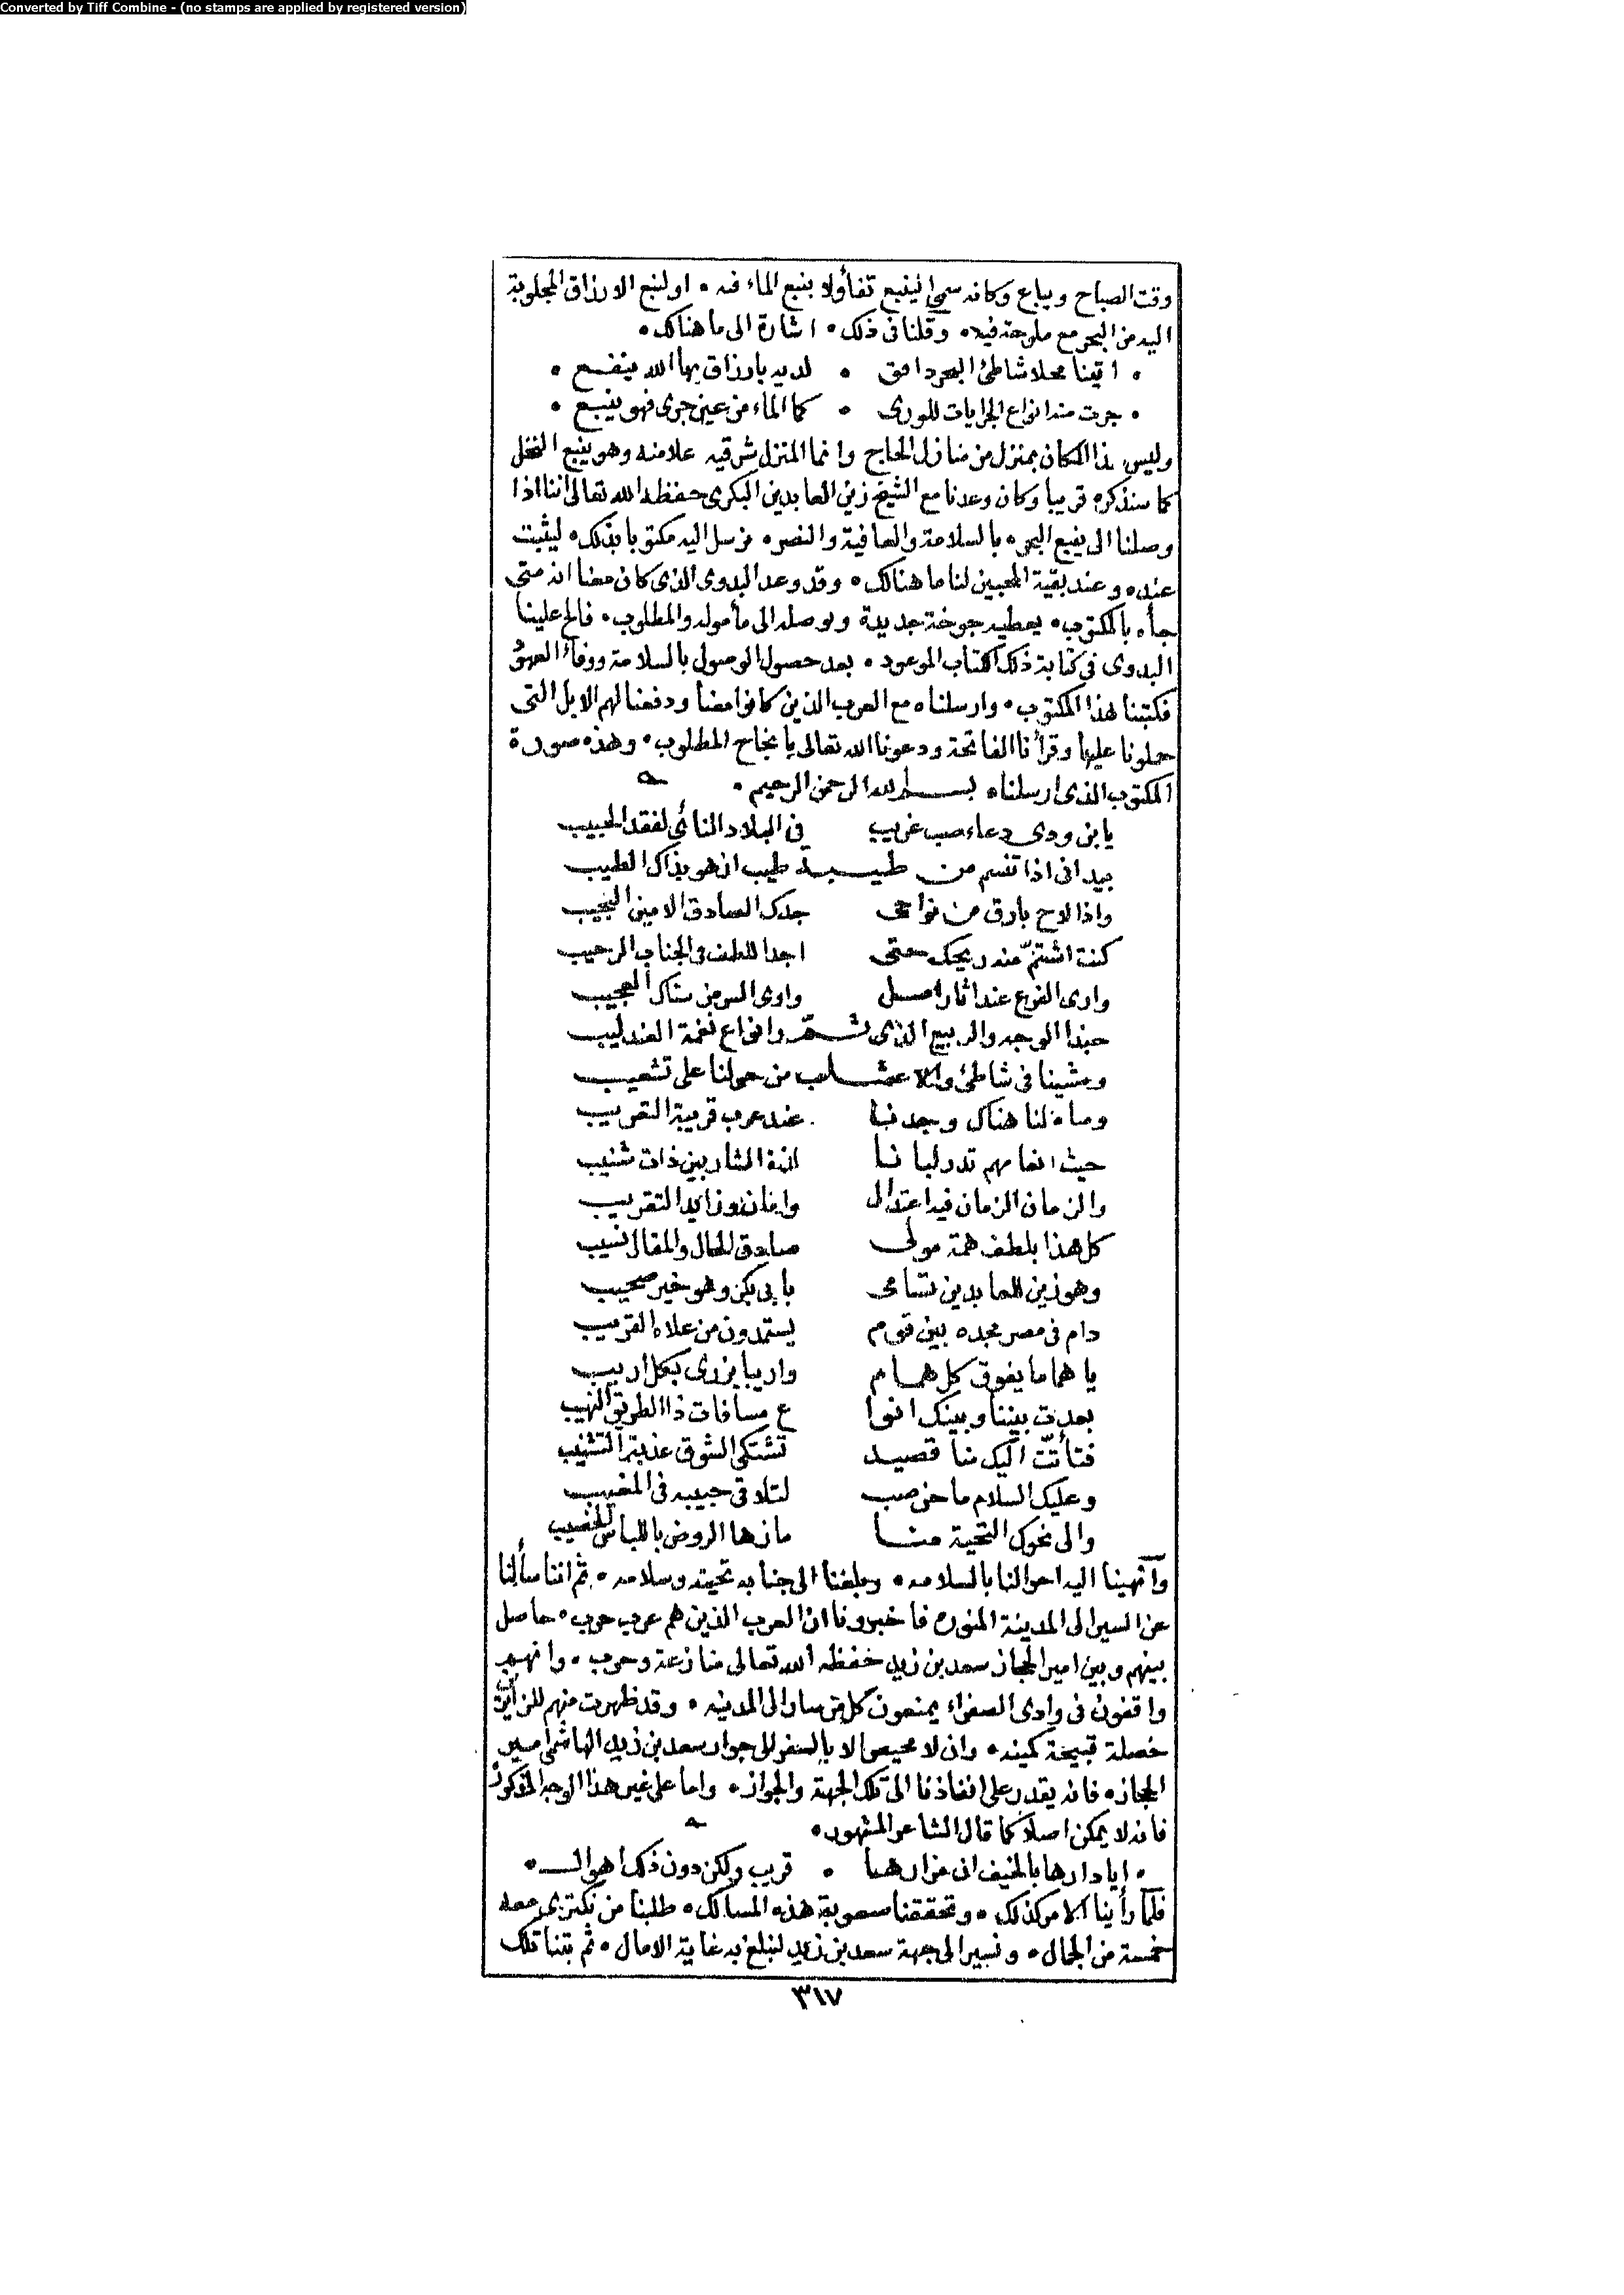 Converted by Tiff Combine - (no stamps are applied by registered version)
وقت الصباح ويباع وكانه سمى الينبع تفأولا بنبع الماء فيه • او لنبع الارزاق المجلوبة
اليه من البحر مع ملوحة فيه • وقلنا فى ذلك • اشارة الى ما هنالك •
• اتينا محلا شاطئ البحر دافق • لديه بارزاق بها الله ينفع •
• جرت منه انواع الجرايات للورى • كما الماء من عين جرى فهو ينبع •
وليس هذا المكان بمنزل من منازل الحاج وانما المنزل شرقيه علامنه وهو ينبع النخل
كما سنذكره قريبا وكان وعدنا مع الشيخ زين العابدين البكرى حفظه الله تعالى اننا اذا
وصلنا الى ينبع البحر • بالسلامة والعافية والنصر • نرسل اليه مكتوبا بذلك • ليثبت
عنده وعند بقية المحبين لنا ما هنالك • وقد وعد البدوى الذى كان معنا انه متى
جاءه بالمكتوب • يعطيه جوخة جديدة ويوصله الى مأموله والمطلوب • فالح علينا
البدوى فى كتابة ذلك الكتاب الموعود • بعد حصول الوصول بالسلامة ووفاء العهود
فكتبنا لهذا المكتوب • وارسلناه مع العرب الذين كانوا معنا ودفعنا لهم الابل التى
حملونا عليها وقرأنا الفاتحة ودعونا الله تعالى بانجاح المطلوب • وهذه صورة
المكتوب الذى ارسلناه بسم الله الرحمن الرحيم •
يا بن ودى دعاء صب غريب فى البلاد النائى لفقد الحبيب
بيد انى اذا تنسم من طيبة طيب انه هو بذاك الطيب
واذا لاح بارق من نواحى جدك الصادق الامين النجيب
كنت اشتمّ منه ريحك حتى اجد اللطف فى الجناب الرحيب
وارى الفرع عند اثار اصل وارى السر من سناك العجيب
حبذا الوجه والربيع الذى ثمّ وانواع نغمة العندليب
ومشينا فى شاطئ والاعشاب من حولنا على تشعيب
ومياه لنا هناك وجدنا عند عرب قريبة التقريب
حيث انعامهم تدر لبانا لذة الشاربين ذات شنيب
والزمان الزمان فيه اعتدال وامان وزايد التقريب
كل هذا بلطف همة مولى صادق الحال والمقال نسيب
وهو زين العابدين تسامى بابى بكر وهو خير صحيب
دام فى مصر مجده بين قوم يستمدون من علاه القريب
يا هماما يفوق كل همام واريبا يزرى بكل اريب
بعدت بيننا وبينك انوا ع مسافات ذا الطريق النهيب
فتأتّت اليك منا قصيد تشتكى الشوق عذبة التشبيب
وعليك السلام ما حن صب لتلاقى حبيبه فى المغيب
والى نحوك التحية منا ما زها الروض باللباس الخضيب
وأنهينا اليه احوالنا بالسلامه • وبلغنا الى جنابه تحيته وسلامه • ثم اننا سألنا
عن السير الى المدينة المنوره فاخبرونا ان العرب الذين هم عرب حرب • حاصل
بينهم وبين امير الحجاز سعد بن زيد حفظه الله تعالى منازعة وحرب • وانهم
واقفون فى وادى الصفراء يمنعون كل من سار الى المدينه • وقد ظهرت منهم للزائرين
خصلة قبيحة كمينه • وان لا محيص الا بالسفر الى جوار سعد بن زيد الهاشمى امير
الحجاز • فانه يقدر على انفاذنا الى تلك الجهة والجواز • واما على غير هذا الوجه المذكور
فانه لا يمكن اصلا كما قال الشاعر المشهور •
• ايا دارها بالخيف ان مزارها • قريب ولكن دون ذلك اهوال •
فلما رأينا الامر كذلك • وتحققنا صعوبة هذه المسالك • طلبنا من نكترى معه
خمسة من الجمال • ونسير الى جهة سعد بن زيد لنبلغ به غاية الامال • ثم بتنا تلك
٣١٧